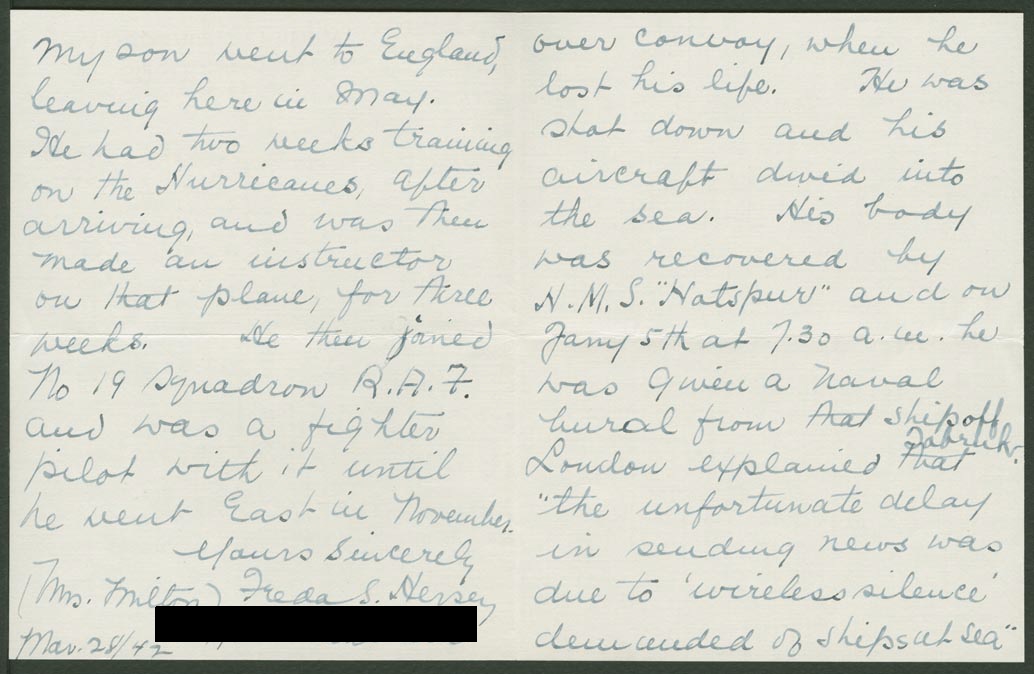 My son went to England,
leaving here in May.
He had two weeks training
on the Hurricanes, after
arriving, and was then
made an instructor
on that plane, for three
weeks. He then joined
No 19 Squadron R.A.F.
and was a fighter
pilot with it until
he went East in November.
Yours Sincerely
(Mrs. Milton) Freda S. Hersey
Mar. 28/42
over convoy, when he
lost his life. He was
shot down and his
aircraft dived into
the sea. His body
was recovered by
H.M.S. "Hotspur" and on
Jany 5th at 7.30 a.m. he
was given a Naval
burial from that ship off
Tobruk.
London explained that
"the unfortunate delay
in sending news was
due to 'wireless silence'
demanded of ships at sea"